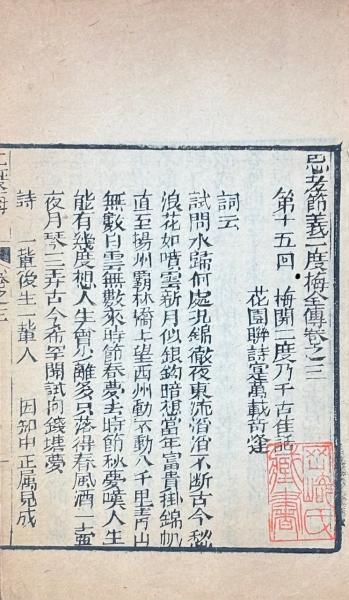 忠孝節義二度梅全傳卷之三
第十五回　梅開二度乃千古佳話
花園聯詩寔萬載奇逢
詞云
試問水歸何處兆綿徹夜東流滔滔不斷古今愁
浪花如噴雪新月似銀鈎暗想當年富貴掛錦帆
直至揚州霸林橋上望西州動不動八千里青山
無數白雲無數來時節春夢去時節秋夢嘆人生
能有幾度想人生會少離多只落得春風酒一壺
夜月琴三弄古今希罕聞試问錢塘夢
詩　一輩後生一輩人　因知中正属見成
二度梅
卷之三
氏
藏書